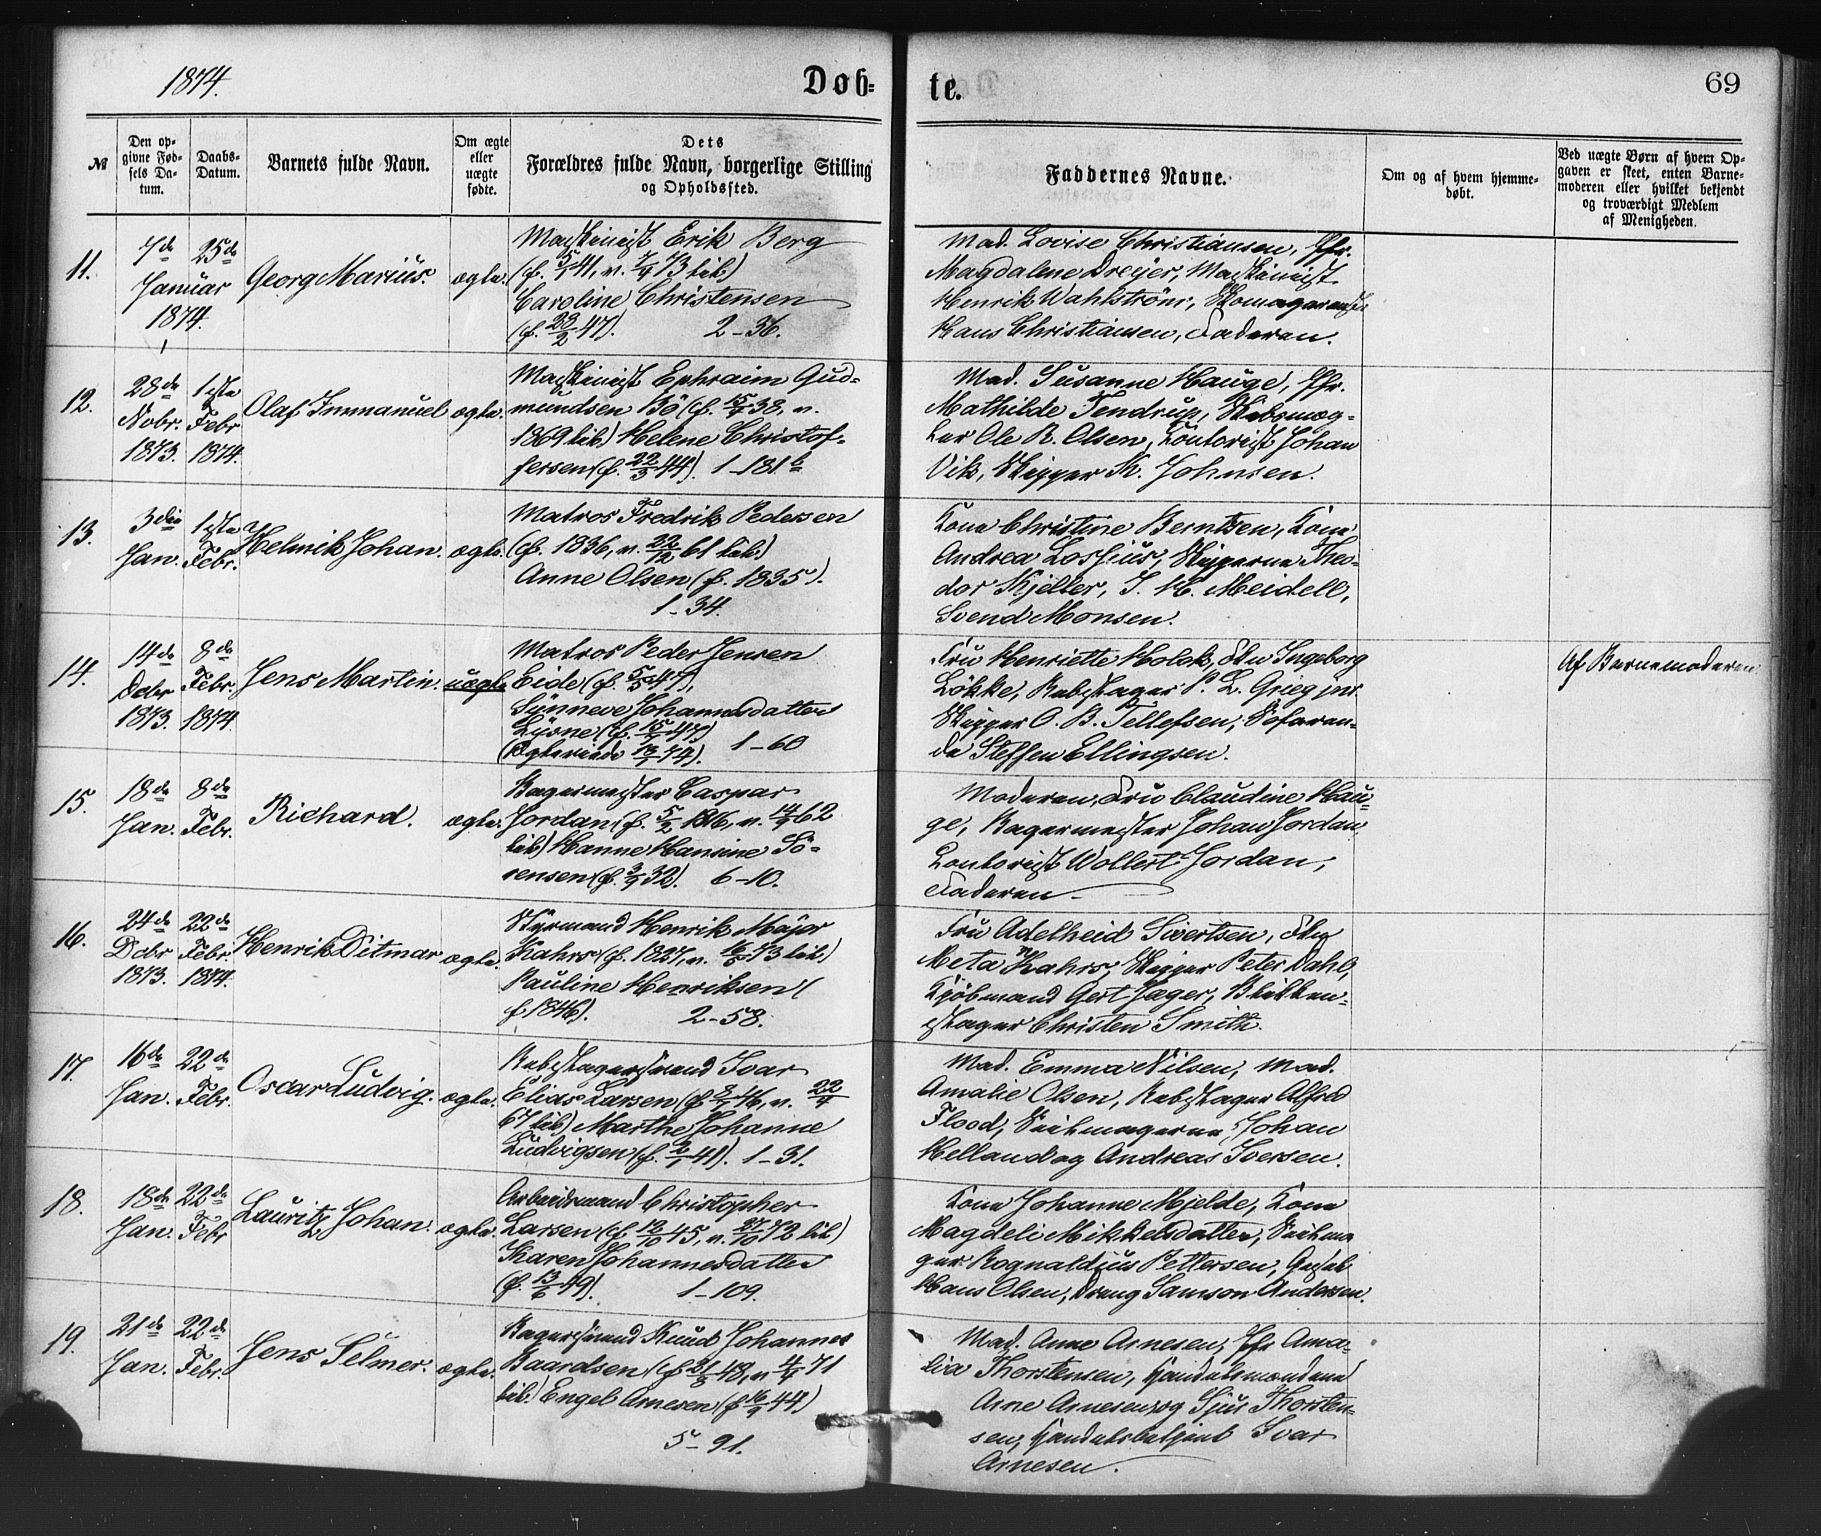 1874.
Døb-
te.
69
№
Den op-
givne Fød-
sels Da-
tum.
Daabs-
Datum.
Barnets fulde Navn.
Om ægte
eller
uægte
fødte.
Dets
Forældres fulde Navn, borgerlige Stilling
og Opholdssted.
Faddernes Navne.
Om og af hvem hjemme-
døbt.
Ved uægte Børn af hvem Op-
gaven er skeet, enten Barne-
moderen eller hvilket bekjendt
og troværdigt Medlem
af Menigheden.
11.
7de
Januar
1874.
25de
Georg Marius.
ægte.
Maskinist Erik Berg
(f. 5/1 41, v. 73 lib)
Caroline Christensen
(f. 23/2 47). 2-36.
Mad. Lovise Christiansen, Jfr.
Magdalene Dreyer, Maskinist
Henrik Wahlström, Skomagersvend
Hans Christiansen, Faderen.
12.
28de
Nobr.
1873.
1ste
Febr
1874.
Olaf Immanuel
ægte.
Maskinist Ephraim Gud-
mundsen Bö (f. 15/7 38, v.
1869 lib) Helene Christof-
fersen (f. 22/3 44). 1-181b
Mad. Susanne Hauge, Jfr.
Mathilde Tendrup, Skibsmæg-
ler Ole R. Olsen, Contorist Johan
Vik, Skipper K. Johnsen.
13.
3die
Jan.
1ste
Febr.
Helmik Johan.
ægte.
Matros Fredrik Pedersen
(f. 1836, v. 22/12 61 lib.)
Anne Olsen (f. 1835).
1-34.
Kone Christine Berntsen, Kone
Andrea Lossius, Skipperne Theo-
dor Kjeller, J. H. Meidell,
Svend Monsen.
14.
14de
Debr
1873.
8de
Febr.
1874.
Jens Martin.
uægte
Matros Peder Jensen
Eide (f. 5/5 47),
Sünneve Johannesdatter
Lyone (f. 15/7 47)
(Ægteviede 13/1 74). 1-60
Fru Henriette Holck, Frk Ingeborg
Løkke, Rebslager P. L. Grieg jnr.
Skipper O. B. Tellefsen, Søfaren-
de Steffen Ellingsen.
Af Barnemoderen
15.
18de
Jan.
8de
Febr.
Richard.
ægte.
Bagermester Caspar
Jordan (f. 5/2 1816, v. 14/9 62
lib) Hanne Hansine Sö-
rensen (f. 3/9 32). 6-10.
Moderen, Fru Claudine Hau-
ge, Bagermester Johan Jordan,
Contorist Wollert Jordan,
Faderen
16.
24de
Debr
1873.
22de
Febr.
1874.
Henrik Ditmar
ægte.
Styrmand Henrik Mayor
Kahrs (f. 1827, v. 16/5 73 lib)
Pauline Henriksen (
f. 1846). 2-58.
Fru Adelheid Sivertsen,
Meta Kahrs, Skipper Peter Dahl,
Kjöbmand Gert Jæger, Blikken-
slager Christen Smith.
17.
16de
Jan.
22de
Febr.
Oscar Ludvig.
ægte.
Rebslagersvend Ivar
Elias Larsen (f. 46, v. 22/4
67 lib) Marthe Johanne
Ludvigsen (f. 2/1 41). 1-31.
Mad. Emma Nilsen, Mad.
Amalie Olsen, Rebslager Alfred
Flood, Skomagerne Johan
Helland og Andreas Iversen.
18.
18de
Jan.
22de
Febr
Lauritz Johan.
ægte.
Arbeidsmand Christopher
Larsen (f. 12/10 45, v. 27/10 72 lib)
Karen Johannesdatter
(f. 13/6 49). 1-109.
Kone Johanne Mjelde, Kone
Magdeli Mikkelsdatter, Skoma
ger Rognaldius Pettersen,
Hans Olsen, Dreng Samson Andersen.
19.
21de
Jan.
22de
Febr.
Jens Selmer.
ægte.
Bagersvend Knud Johannes
Baardsen (f 21/3 48, v 4/7 71
lib) Engel Arnesen (f 16/9 44)
5-91.
Mad. Anne Arnesen, Jfr Ama-
lia Thorstensen, Handelsmændene
Arne Arnesen og Sjur Thorsten-
sen, Handelsbetjent Ivar
Arnesen.